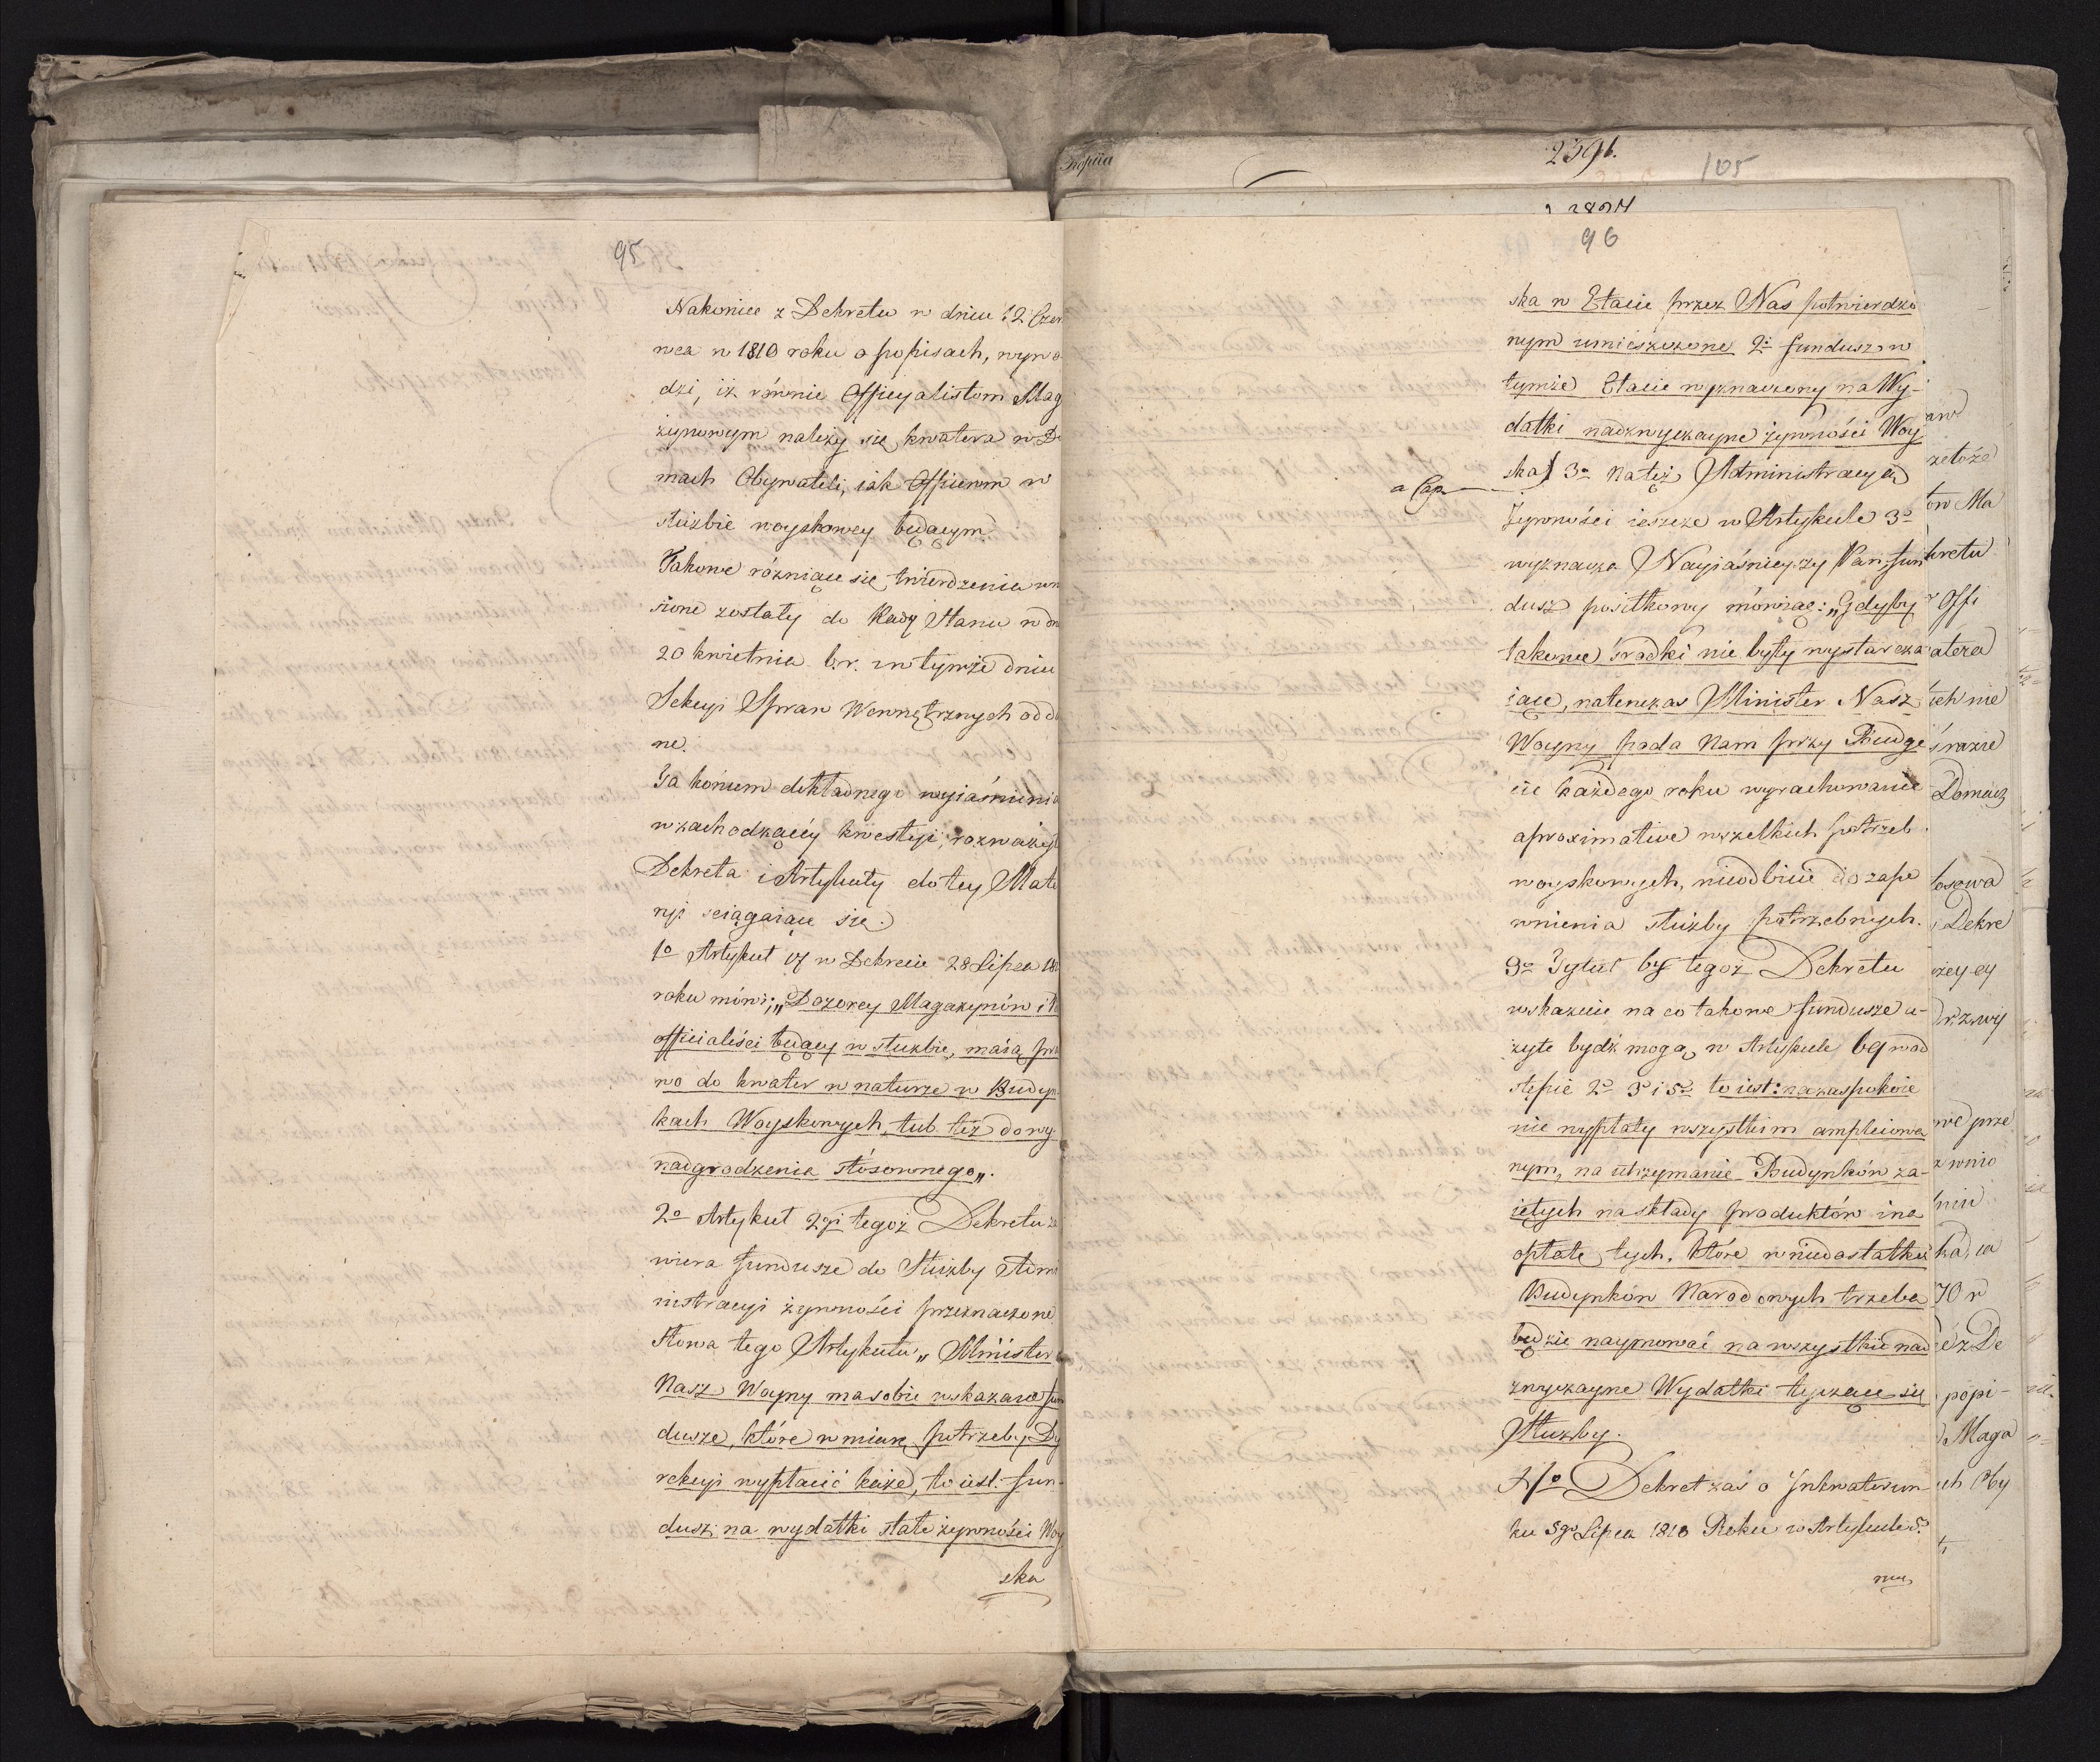 95
Nakoniec z Dekretu w dniu 12 Czer
wca w 1810 roku o popisach, wywo
dzi, iż równie Officyalistom Mag
zynowym należy się kwatera w Do
mach Obywateli, iak Officerom w
służbie woyskowey będącym.
Takowe różniące się twierdzenia wn
sione zostały do Rady Stanu w dn
20 kwietnia b.r. i w tymże dniu
Sekcyi Spraw Wewnętrznych odda
ne.
Ta końcem dokładnego wyiaśnienia
w zachodzącéy kwestyi, rozważył
Dekreta i Artykuły do tey Mate
ryi sciągaiące się.
1o Artykuł 17 w Dekrecie 28 Lipca 18
roku mówi; „Dozorcy Magazynów i
officialiści będący w służbie, maią pra
wo do kwater w naturze w Budyn
kach Woyskowych, lub też do wy-
nadgrodzenia stósownego„.
2o Artykuł 2gi tegoż Dekretu za
wiera fundusze do Służby Admi
nistracyi żywności przeznaczone.
Słowa tego Artykułu „Minister
Nasz Woyny ma sobie wskazane fun
dusze, które w miarę potrzeby Dy
rekcyi wypłacić każe, to iest: fun-
dusz na wydatki stałe żywności Woy
ska
Kopiia
2396.
105
96
ska w Etacie przez Nas potwierdzo
nym umieszczone 2: fundusz w
tymże Etacie wyznaczony na Wy-
datki nadzwyczayne żywności Woy
ska) 3o na też Administracyą
a Cap.
Żywności ieszcze w Artykule 3o
wyznacza Nayiaśnieyszy Pan fun
dusz posiłkowy mówiąc: „Gdyby
takowe środki nie były wystarcza
iące, natenczas Minister Nasz
Woyny poda Nam przy Budże
cie każdego roku wyrachowanie
aproximative wszelkich potrzeb
woyskowych, nieodbicie do zape
wnienia służby potrzebnych.
3o Tytuł by tegoż Dekretu
wskazuie na co takowe fundusze u-
żyte bydź mogą w Artykule 69 w od
stępie 2o 3o i 5o to iest: na zaspokoie
nie wypłaty wszystkim ampleiowa
nym, na utrzymanie Budynków za-
iętych na składy produktów i na
opłatę tych, które w niedostatku
Budynków Narodowych trzeba
będzie naymować na wszystkie nad
zwyczayne Wydatki tyczące się
Służby.
4to Dekret zaś o Inkwaterun-
ku 3go Lipca 1810 Roku w Artykule 5o
zetoże
ów Ma
kretu
Offi
atera
ich nie
Domacz
tosowa
Dekre
we prze
z wnio
70 w
é z De
popi-
Maga
ch Oby